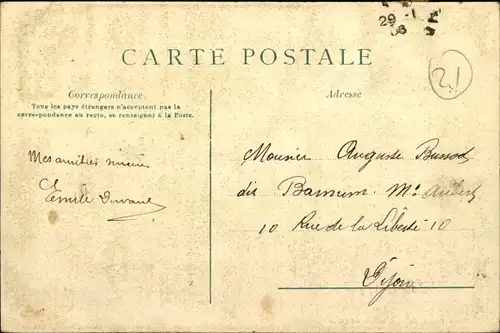 29 -1
06
CARTE POSTALE
21
Correspondance.
Tous les pays étrangers n'acceptent pas la
correspondance au recto, se renseigner à la Poste.
Adresse
Mes amitiés
Emile
Monsieur Auguste
dit Barnum. Mon Aubert
10 Rue de la Liberté 10
Dijon